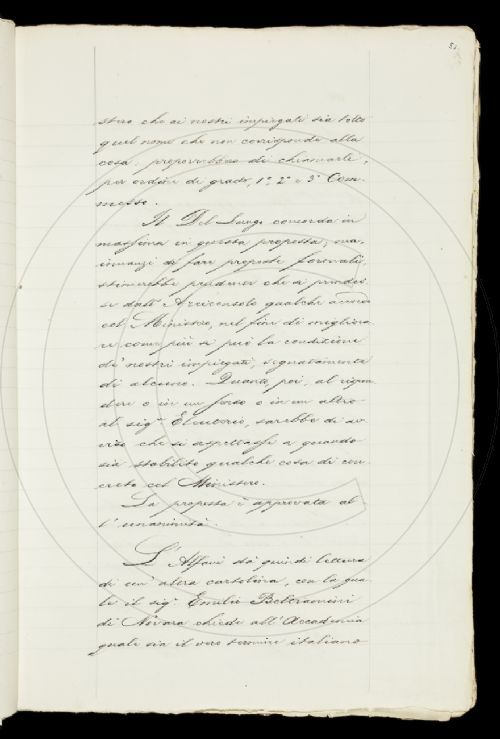 51
stero che ai nostri impiegati sia tolto
quel nome che non corrisponde alla
cosa: proporrebbe di chiamarli,
per ordine di grado, 1°, 2° e 3° Com-
messo.
Il Del Lungo concorda in
massima in questa proposta; ma,
innanzi di fare proposte formali,
stimerebbe prudente che si prendes-
se dall' Arciconsolo qualche
col Ministero, nel fine di migliora-
re come più si può la condizione
de' nostri impiegati, segnatamente
di alcuno. Quanto poi, al rispon-
dere o in un senso o in un altro
al sig.r Eleuterio, sarebbe di av-
viso che si aspettasse a quando
sia stabilito qualche cosa di con-
creto col Ministero.
La proposta è approvata al-
l' unanimità.
L' Alfani dà quindi lettura
di un' altra cartolina, con la qua-
le il sig.r Emilio Beltramini
di Novara chiede all' Accademia
quale sia il vero termine italiano